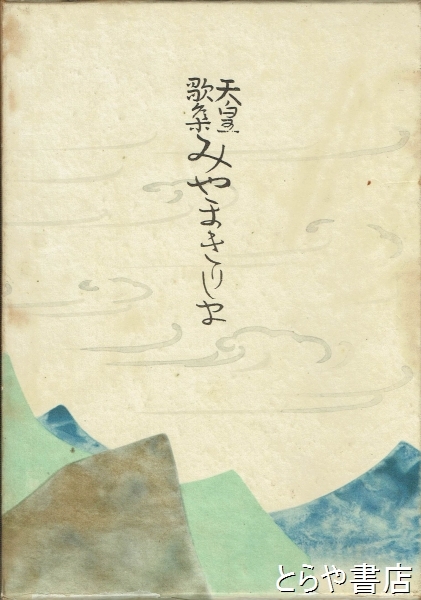 天皇
歌集
みやまきりしま
とらや書店